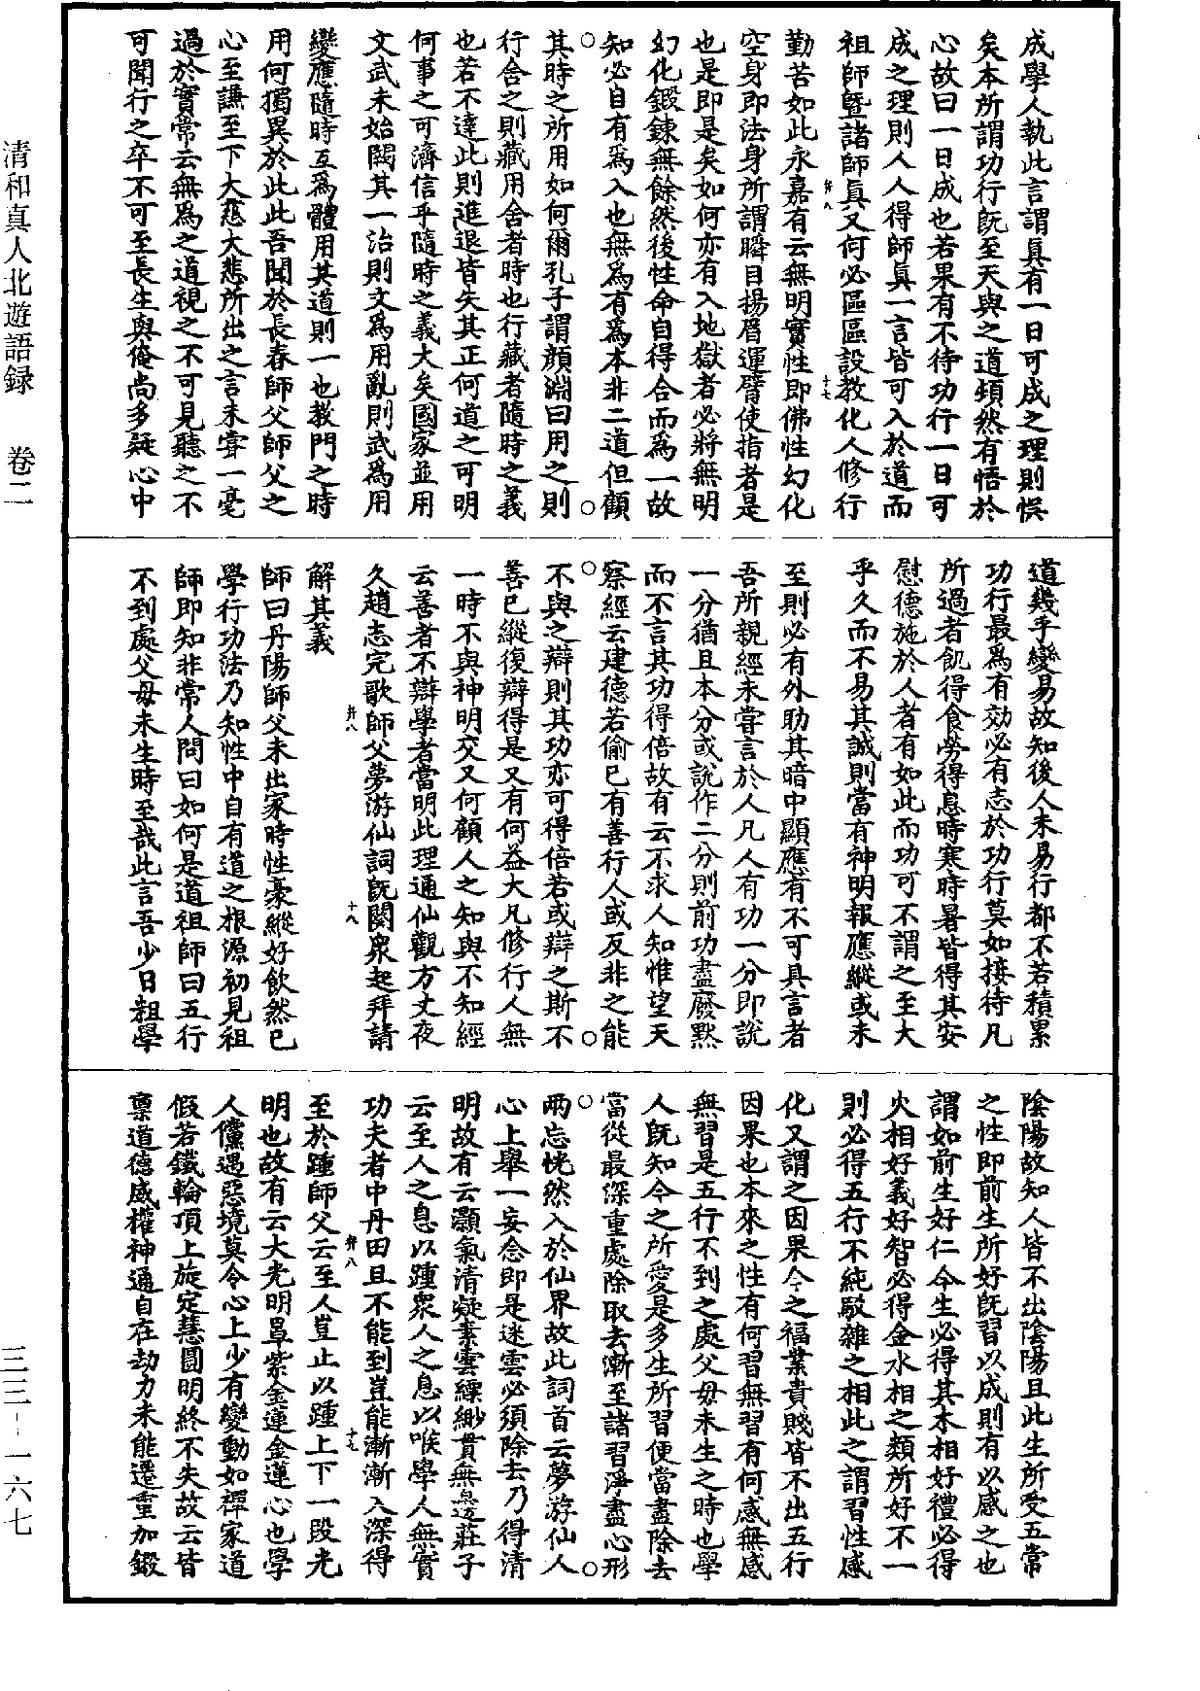 成學人執此言謂眞有一日可成之理則悮
矣本所謂功行旣至天與之道頓然有悟於
心故曰一日成也若果有不待功行一日可
成之理則人人得師眞一言皆可入於道而
祖師曁諸師眞又何必區區設教化人修行
弁八
十七
勤苦如此永嘉有云無明實性即佛性幻化
空身即法身所謂瞬目揚眉運臂使指者是
也是即是矣如何亦有入地獄者必將無明
幻化鍛鍊無餘然後性命自得合而爲一故
知必自有爲入也無爲有爲本非二道但顧
其時之所用如何爾孔子謂顏淵曰用之則
行舍之則藏用舍者時也行藏者隨時之義
也若不達此則進退皆失其正何道之可明
何事之可濟信乎隨時之義大矣國家並用
文武未始闕其一治則文爲用亂則武爲用
變應隨時互爲體用其道則一也教門之時
用何獨異於此此吾聞於長春師父師父之
心至謙至下大慈大悲所出之言未嘗一毫
過於實常云無爲之道視之不可見聽之不
可聞行之卒不可至長生與俺尚多疑心中
道幾乎變易故知後人未易行都不若積累
功行最爲有効必有志於功行莫如接待凡
所過者飢得食勞得息時寒時暑皆得其安
慰德施於人者有如此而功可不謂之至大
乎久而不易其誠則當有神明報應縱或未
至則必有外助其暗中顯應有不可具言者
吾所親經未嘗言於人凡人有功一分即說
一分猶且本分或說作二分則前功盡廢黙
而不言其功得倍故有云不求人知惟望天
察經云建德若偷已有善行人或反非之能
不與之辯則其功亦可得倍若或辯之斯不
善已縱復辯得是又有何益大凡修行人無
一時不與神明交又何顧人之知與不知經
云善者不辯學者當明此理通仙觀方丈夜
久趙志完歌師父夢游仙詞旣闋衆起拜請
弁八
十八
解其義
師曰丹陽師父未出家時性豪縱好飲然已
學行功法乃知性中自有道之根源初見祖
師即知非常人問曰如何是道祖師曰五行
不到處父母未生時至哉此言吾少日粗學
陰陽故知人皆不出陰陽且此生所受五常
之性即前生所好旣習以成則有以感之也
謂如前生好仁今生必得其木相好禮必得
火相好義好智必得金水相之類所好不一
則必得五行不純駁雜之相此之謂習性感
化又謂之因果今之福業貴賤皆不出五行
因果也本來之性有何習無習有何感無感
無習是五行不到之處父母未生之時也學
人旣知今之所愛是多生所習便當盡除去
當從最深重處除取去漸至諸習淨盡心形
兩忘恍然入於仙界故此詞首云夢游仙人
心上舉一妄念即是迷雲必須除去乃得清
明故有云灝氣清凝素雲縹緲貫無邊莊子
云至人之息以踵衆人之息以喉學人無實
功夫者中丹田且不能到豈能漸漸入深得
弁八
十九
至於踵師父云至人豈止以踵上下一段光
明也故有云大光明罩紫金蓮金蓮心也學
人儻遇惡境莫令心上少有變動如禪家道
假若鐵輪頂上旋定慧圓明終不失故云皆
禀道德威權神通自在劫力未能遷重加鍛
清和真人北遊語録　卷二
三三－一六七